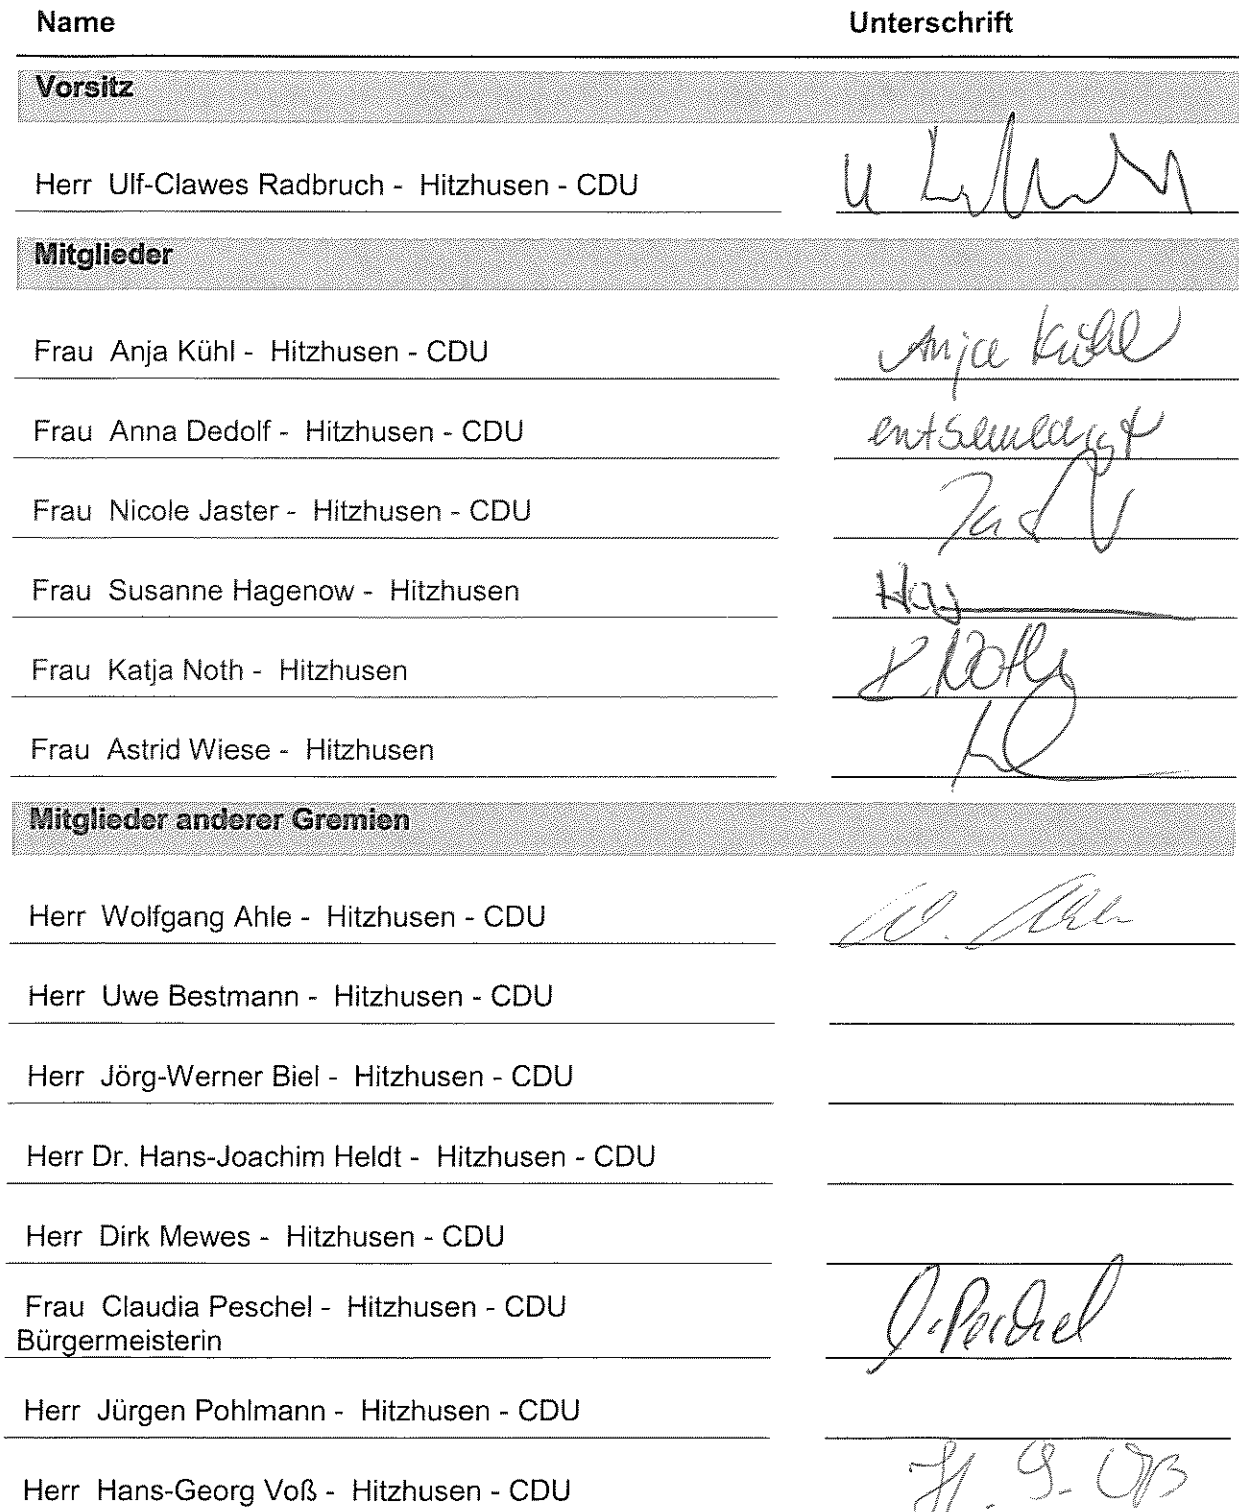 Name Unterschrift
Vorsitz
Herr Ulf-Clawes Radbruch - Hitzhusen - CDU
Mitglieder
Frau Anja Kühl - Hitzhusen - CDU Anja Kühl
Frau Anna Dedolf - Hitzhusen - CDU entschuldigt
Frau Nicole Jaster - Hitzhusen - CDU
Frau Susanne Hagenow - Hitzhusen Hag
Frau Katja Noth - Hitzhusen K. Noth
Frau Astrid Wiese - Hitzhusen
Mitglieder anderer Gremien
Herr Wolfgang Ahle - Hitzhusen - CDU W. Ahle
Herr Uwe Bestmann - Hitzhusen - CDU
Herr Jörg-Werner Biel - Hitzhusen - CDU
Herr Dr. Hans-Joachim Heldt - Hitzhusen - CDU
Herr Dirk Mewes - Hitzhusen - CDU
Frau Claudia Peschel - Hitzhusen - CDU C. Peschel
Bürgermeisterin
Herr Jürgen Pohlmann - Hitzhusen - CDU
Herr Hans-Georg Voß - Hitzhusen - CDU H. G. Voß